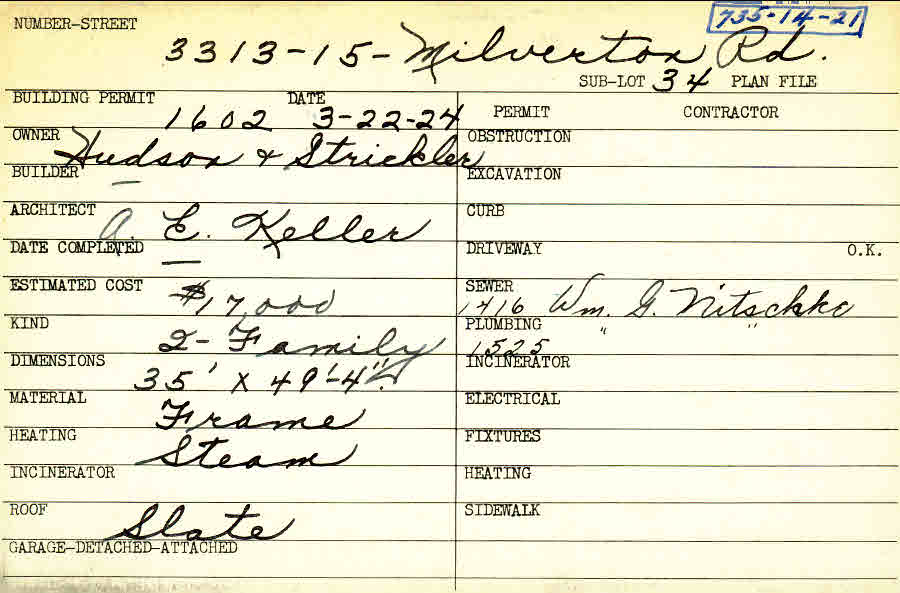 735-14-21
NUMBER-STREET
3313-15-Milverton Rd.
SUB-LOT 34 PLAN FILE
BUILDING PERMIT 1602 DATE 3-22-24
PERMIT CONTRACTOR
OWNER Hudson & Strickler
OBSTRUCTION
BUILDER —
EXCAVATION
ARCHITECT A. E. Keller
CURB
DATE COMPLETED —
DRIVEWAY O.K.
ESTIMATED COST $17,000
SEWER 1716 Wm. G. Nitschke
KIND 2-Family
PLUMBING 1525 " "
DIMENSIONS 35' X 49'-4"
INCINERATOR
MATERIAL Frame
ELECTRICAL
HEATING Steam
FIXTURES
INCINERATOR
HEATING
ROOF Slate
SIDEWALK
GARAGE-DETACHED-ATTACHED